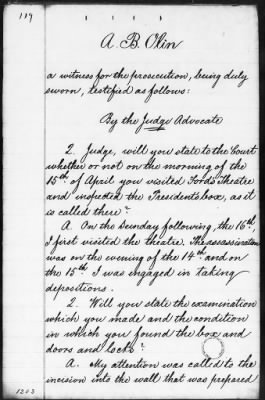 119
A. B. Olin
a witness for the prosecution, being duly
sworn, testified as follows:
By the Judge Advocate
Q. Judge, will you state to the Court
whether or not on the morning of the
15th of April you visited Ford's Theatre
and inspected the President's box, as it
is called there?
A. On the Sunday following, the 16th,
I first visited the theatre. The assassination
was on the evening of the 14th and on
the 15th I was engaged in taking
depositions.
Q. Will you state the examination
which you made and the condition
in which you found the box and
doors and locks?
A. My attention was called to the
incision into the wall that was prepared
1203